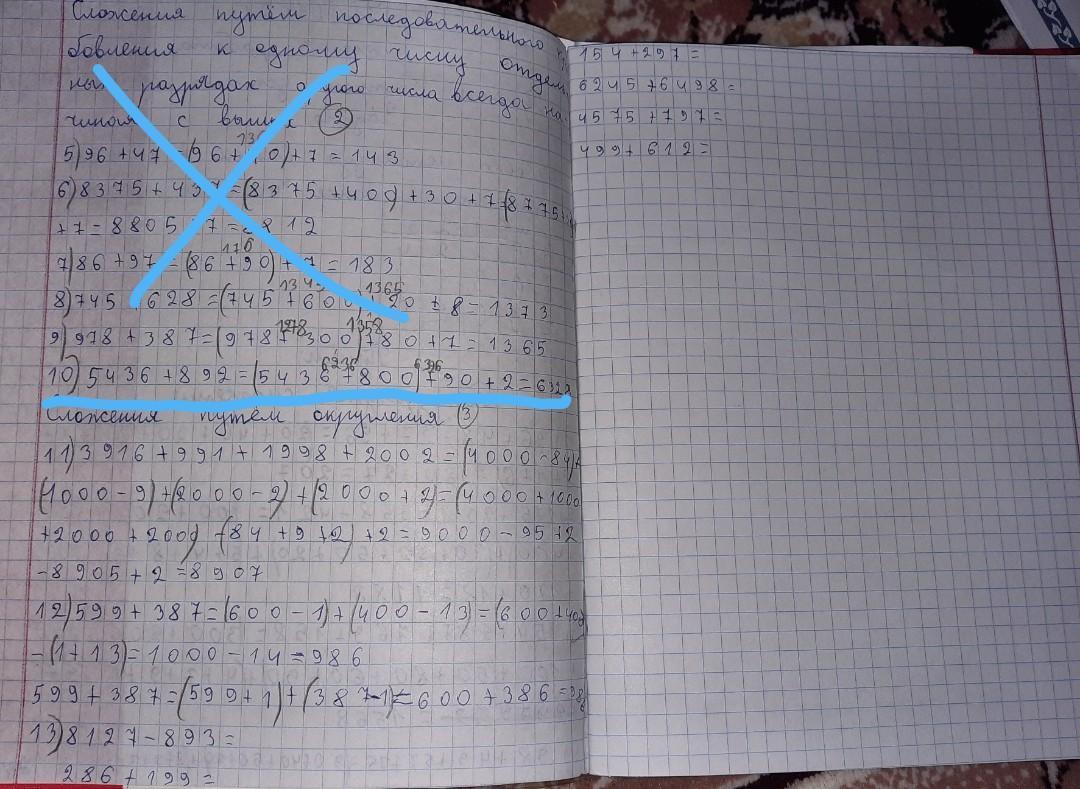 Сложения путём последовательного
бовления к одному числу отдель
ных разрядах другого числа всегда на
чиная с вышых (2)
136
5)96+47=(96+40)+7=143
6)8375+437=(8375+400)+30+7=(8775+
+7=8805+7=8812
176
7)86+97=(86+90)+7=183
1345 1365
8)745+628=(745+600)+20+8=1373
1278 1358
9)978+387=(978+300)+80+7=1365
6236 6326
10)5436+892=(5436+800)+90+2=6328
Сложения путём округления (3)
11)3916+991+1998+2002=(4000-84)+
(1000-9)+(2000-2)+(2000+2)=(4000+1000
+2000+2000)-(84+9+2)+2=9000-95+2
-8905+2=8907
12)599+387=(600-1)+(400-13)=(600+400)
-(1+13)=1000-14=986
599+387=(599+1)+(387-1)=600+386=986
13)8127-893=
286+199=
154+297=
6245+6498=
4575+797=
499+612=